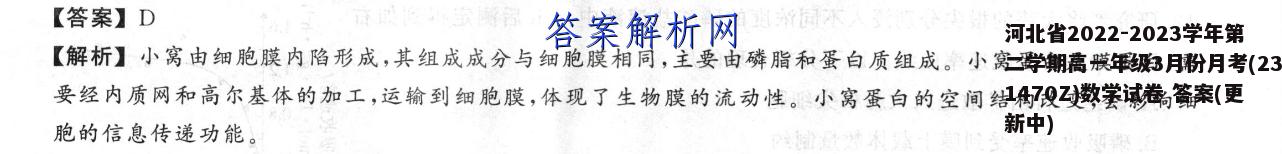 【答案】D
答案解析网
【解析】小窝由细胞膜内陷形成,其组成成分与细胞膜相同,主要由磷脂和蛋白质组成。小窝
要经内质网和高尔基体的加工,运输到细胞膜,体现了生物膜的流动性。小窝蛋白的空间结构改变,会影响细
胞的信息传递功能。
河北省2022-2023学年第
二学期高一年级3月份月考(23
1470Z)数学试卷 答案(更
新中)